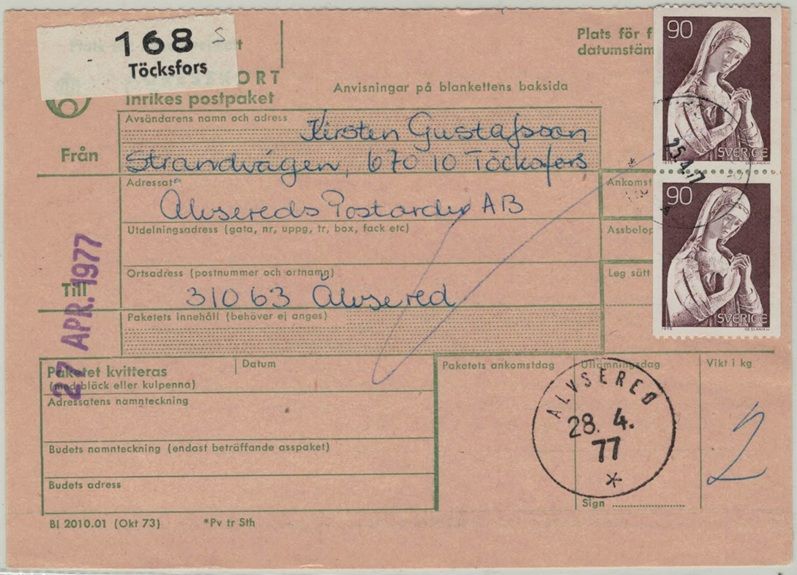 168 S
Töcksfors
Plats för f
datumstäm
KORT
Inrikes postpaket
Anvisningar på blankettens baksida
90
SVERIGE
Avsändarens namn och adress
Från
Kirsten Gustafsson
Strandvägen, 670 10 Töcksfors
Adressat
Ankomst
Alvsereds Postorder AB
Utdelningsadress (gata, nr, uppg, tr, box, fack etc)
Assbelop
90
SVERIGE
Till
Ortsadress (postnummer och ortnamn)
Leg sätt
310 63 Älvsered
Paketets innehåll (behöver ej anges)
27 APR. 1977
Paketet kvitteras
(med bläck eller kulpenna)
Datum
Paketets ankomstdag
Utlämningsdag
Vikt i kg
Adressatens namnteckning
ÄLVSERED
28. 4.
77
2
Budets namnteckning (endast beträffande asspaket)
Budets adress
Sign
Bl 2010.01 (Okt 73)
*Pv tr Sth